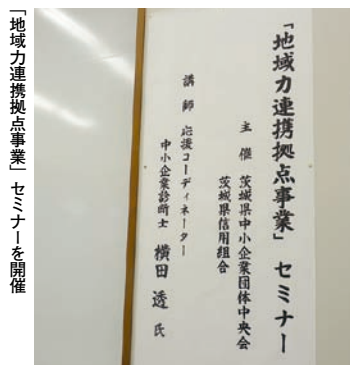 「地域力連携拠点事業」セミナー
主催 茨城県中小企業団体中央会
茨城県信用組合
講師 応援コーディネーター
中小企業診断士 横田 透 氏
「地域力連携拠点事業」セミナーを開催